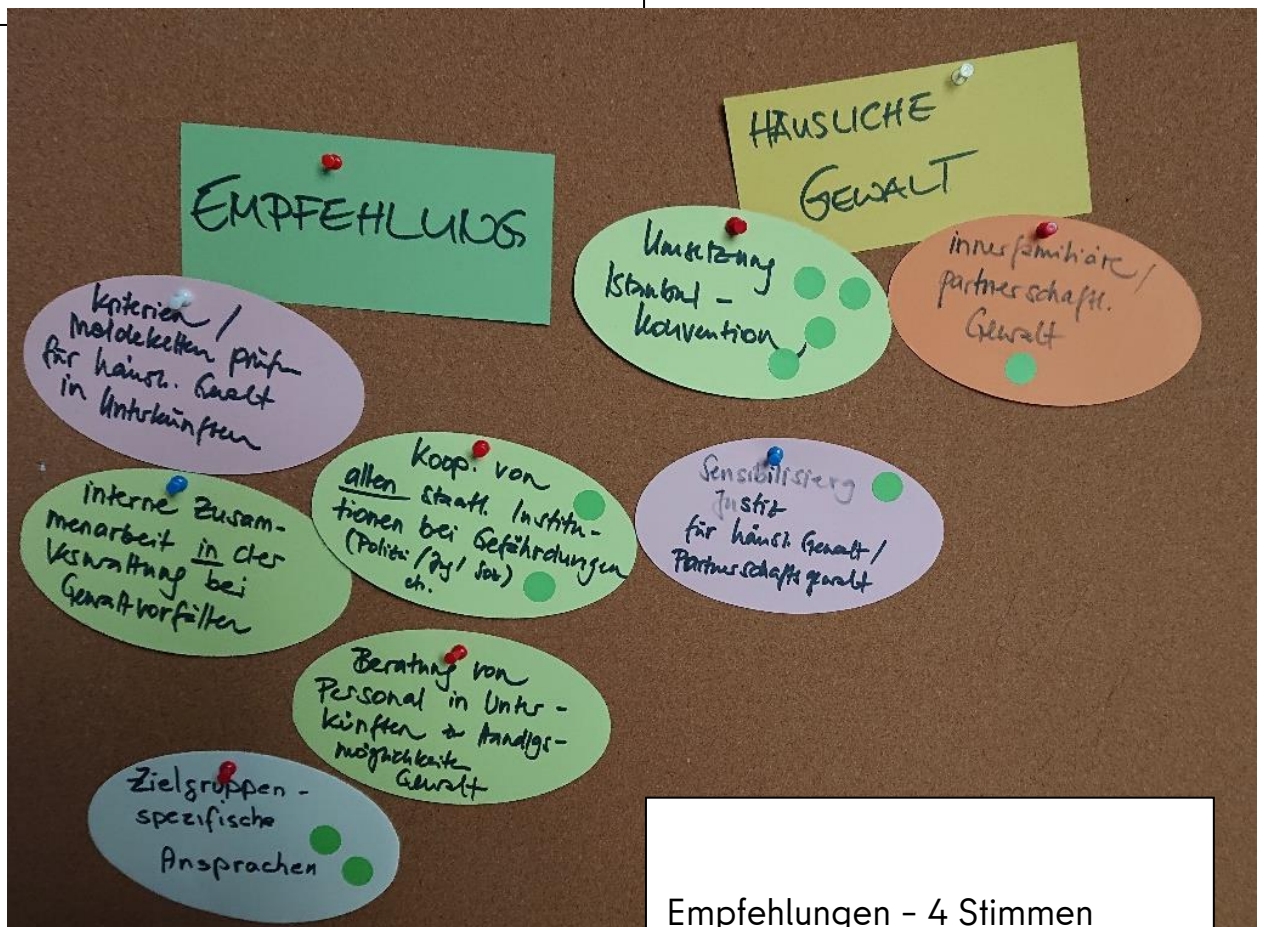 EMPFEHLUNG
HÄUSLICHE
GEWALT
Umsetzung
Istanbul -
Konvention
innerfamiliäre /
partnerschaftl.
Gewalt
Kriterien /
Meldeketten prüfen
für häusl. Gewalt
in Unterkünften
interne Zusam-
menarbeit in der
Verwaltung bei
Gewaltvorfällen
Koop. von
allen staatl. Institu-
tionen bei Gefährdungen
(Polizei /
Sensibilisierg
Justiz
für häusl. Gewalt /
Partnerschaftsgewalt
Beratung von
Personal in Unter-
künften zu Handlgs-
möglichkeiten
Gewalt
Zielgruppen -
spezifische
Ansprachen
Empfehlungen – 4 Stimmen